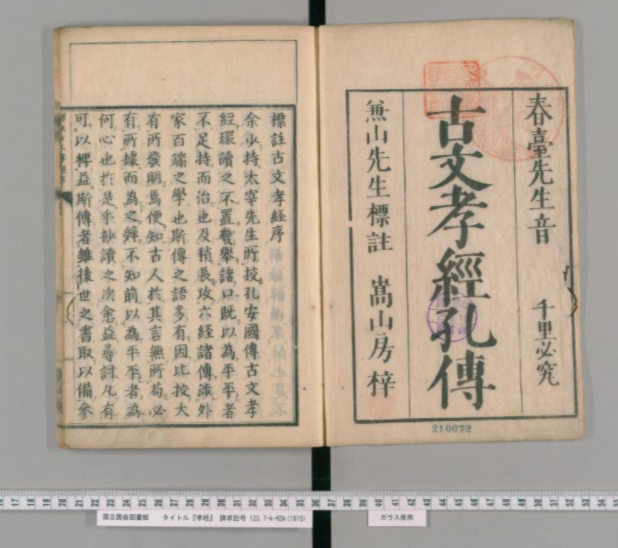 春臺先生音
千里必究
古文孝經孔傳
無山先生標註
嵩山房梓
210072
標註古文孝經序
余少持太宰先生所挍孔安國傳古文孝
經環讀之不置幾舉諸口既以為平平者
不足持而治也及稍長攻六經諸傳涉外
家百端之學也斯傳之語多有因比挍大
有所發明焉便知古人於其言無所苟必
有所據而為之辞不知前以為平平者為
何心也於是乎抄讀之次愈益尋討凡有
可以裨益斯傳者雖後世之書取以備參
国立国会図書館 タイトル『孝経』 請求記号 123.7-k-KOk(1815)
ガラス使用